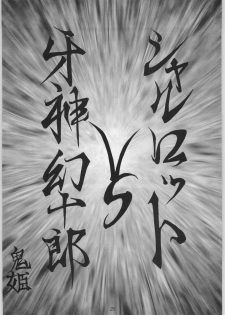 シャルロット
VS
牙神幻十郎
鬼姫